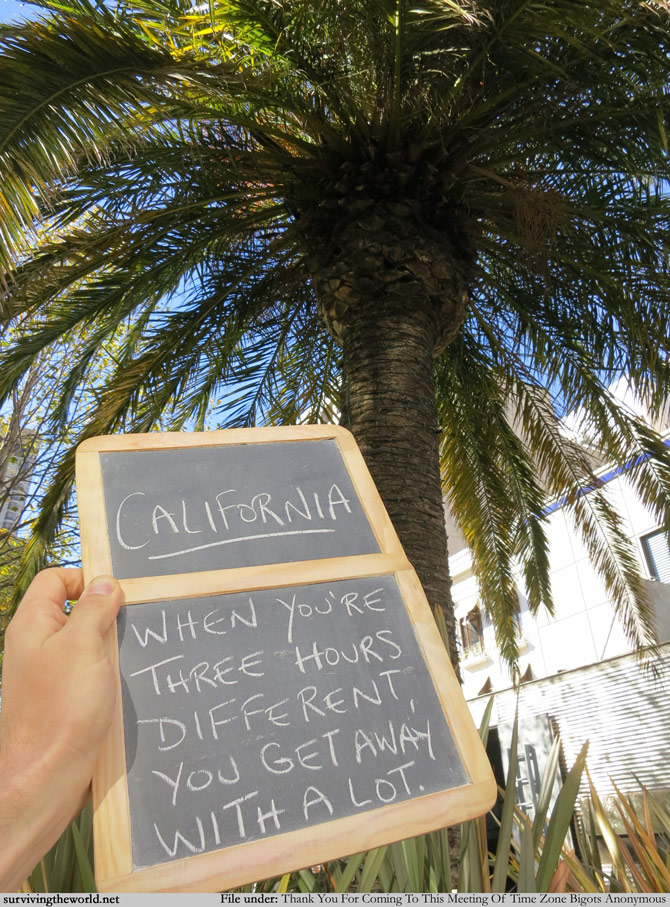 CALIFORNIA
WHEN YOU'RE
THREE HOURS
DIFFERENT,
YOU GET AWAY
WITH A LOT.
survivingtheworld.net File under: Thank You For Coming To This Meeting Of Time Zone Bigots Anonymous